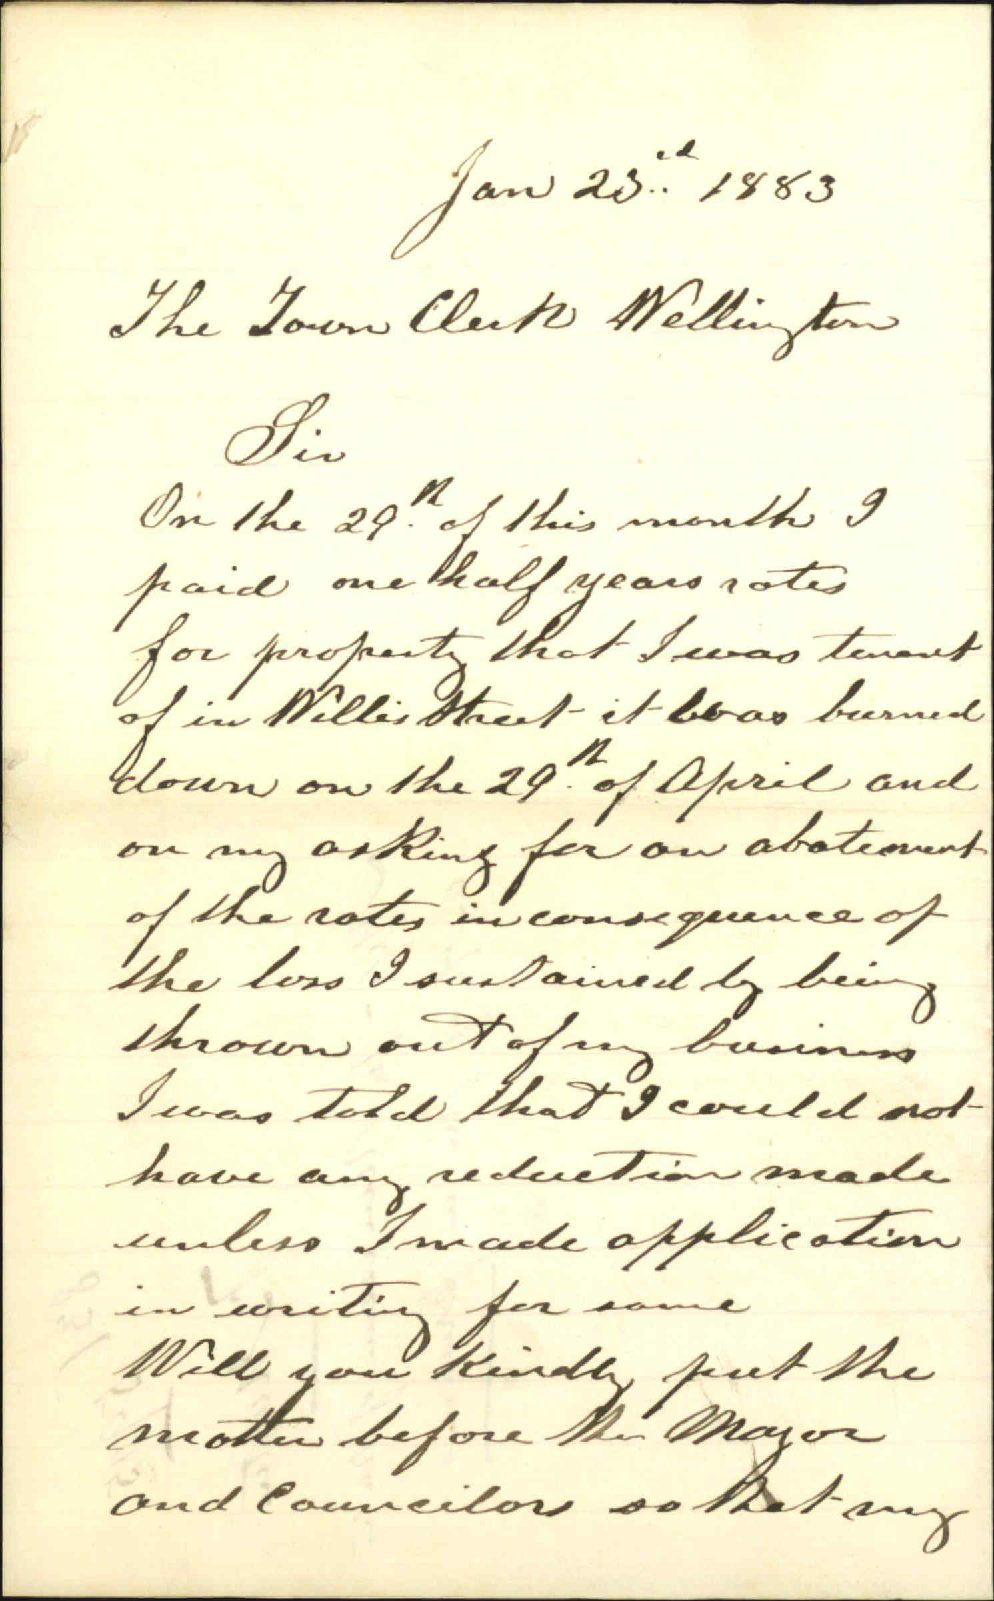 Jan 23rd 1883
The Town Clerk Wellington
Sir
On the 29th of this month I
paid one half years rates
for property that I was tenant
of in Willis Street it was burned
down on the 29th of April and
on my asking for an abatement
of the rates in consequence of
the loss I sustained by being
thrown out of my business
I was told that I could not
have any reduction made
unless I made application
in writing for same
Will you kindly put the
matter before the Mayor
and Councilors so that my